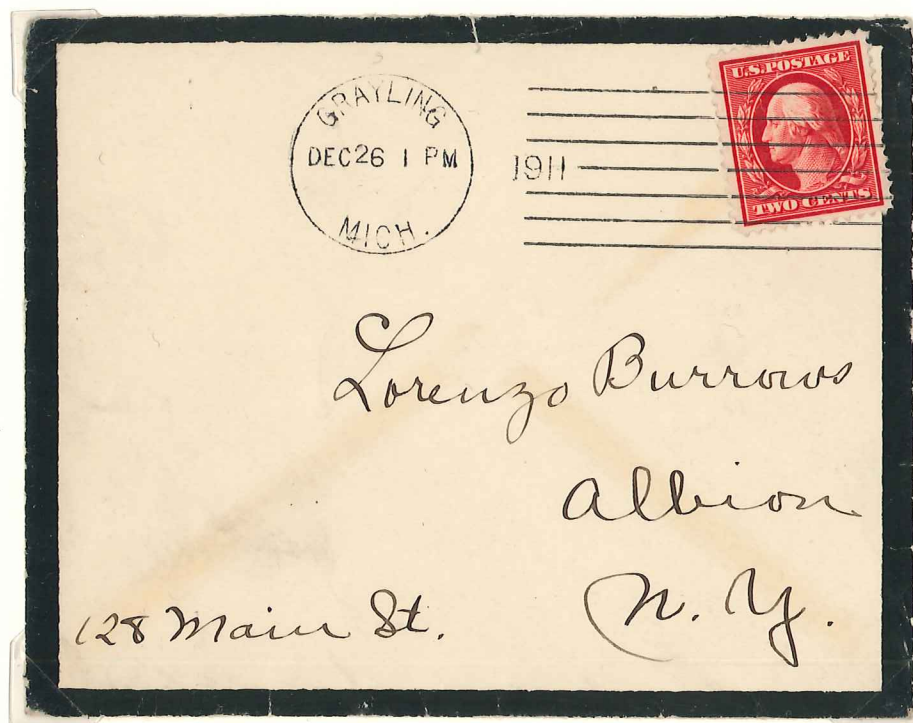 GRAYLING
DEC 26 1 PM
MICH.
1911
U.S. POSTAGE
TWO CENTS
Lorenzo Burrows
Albion
N. Y.
128 Main St.